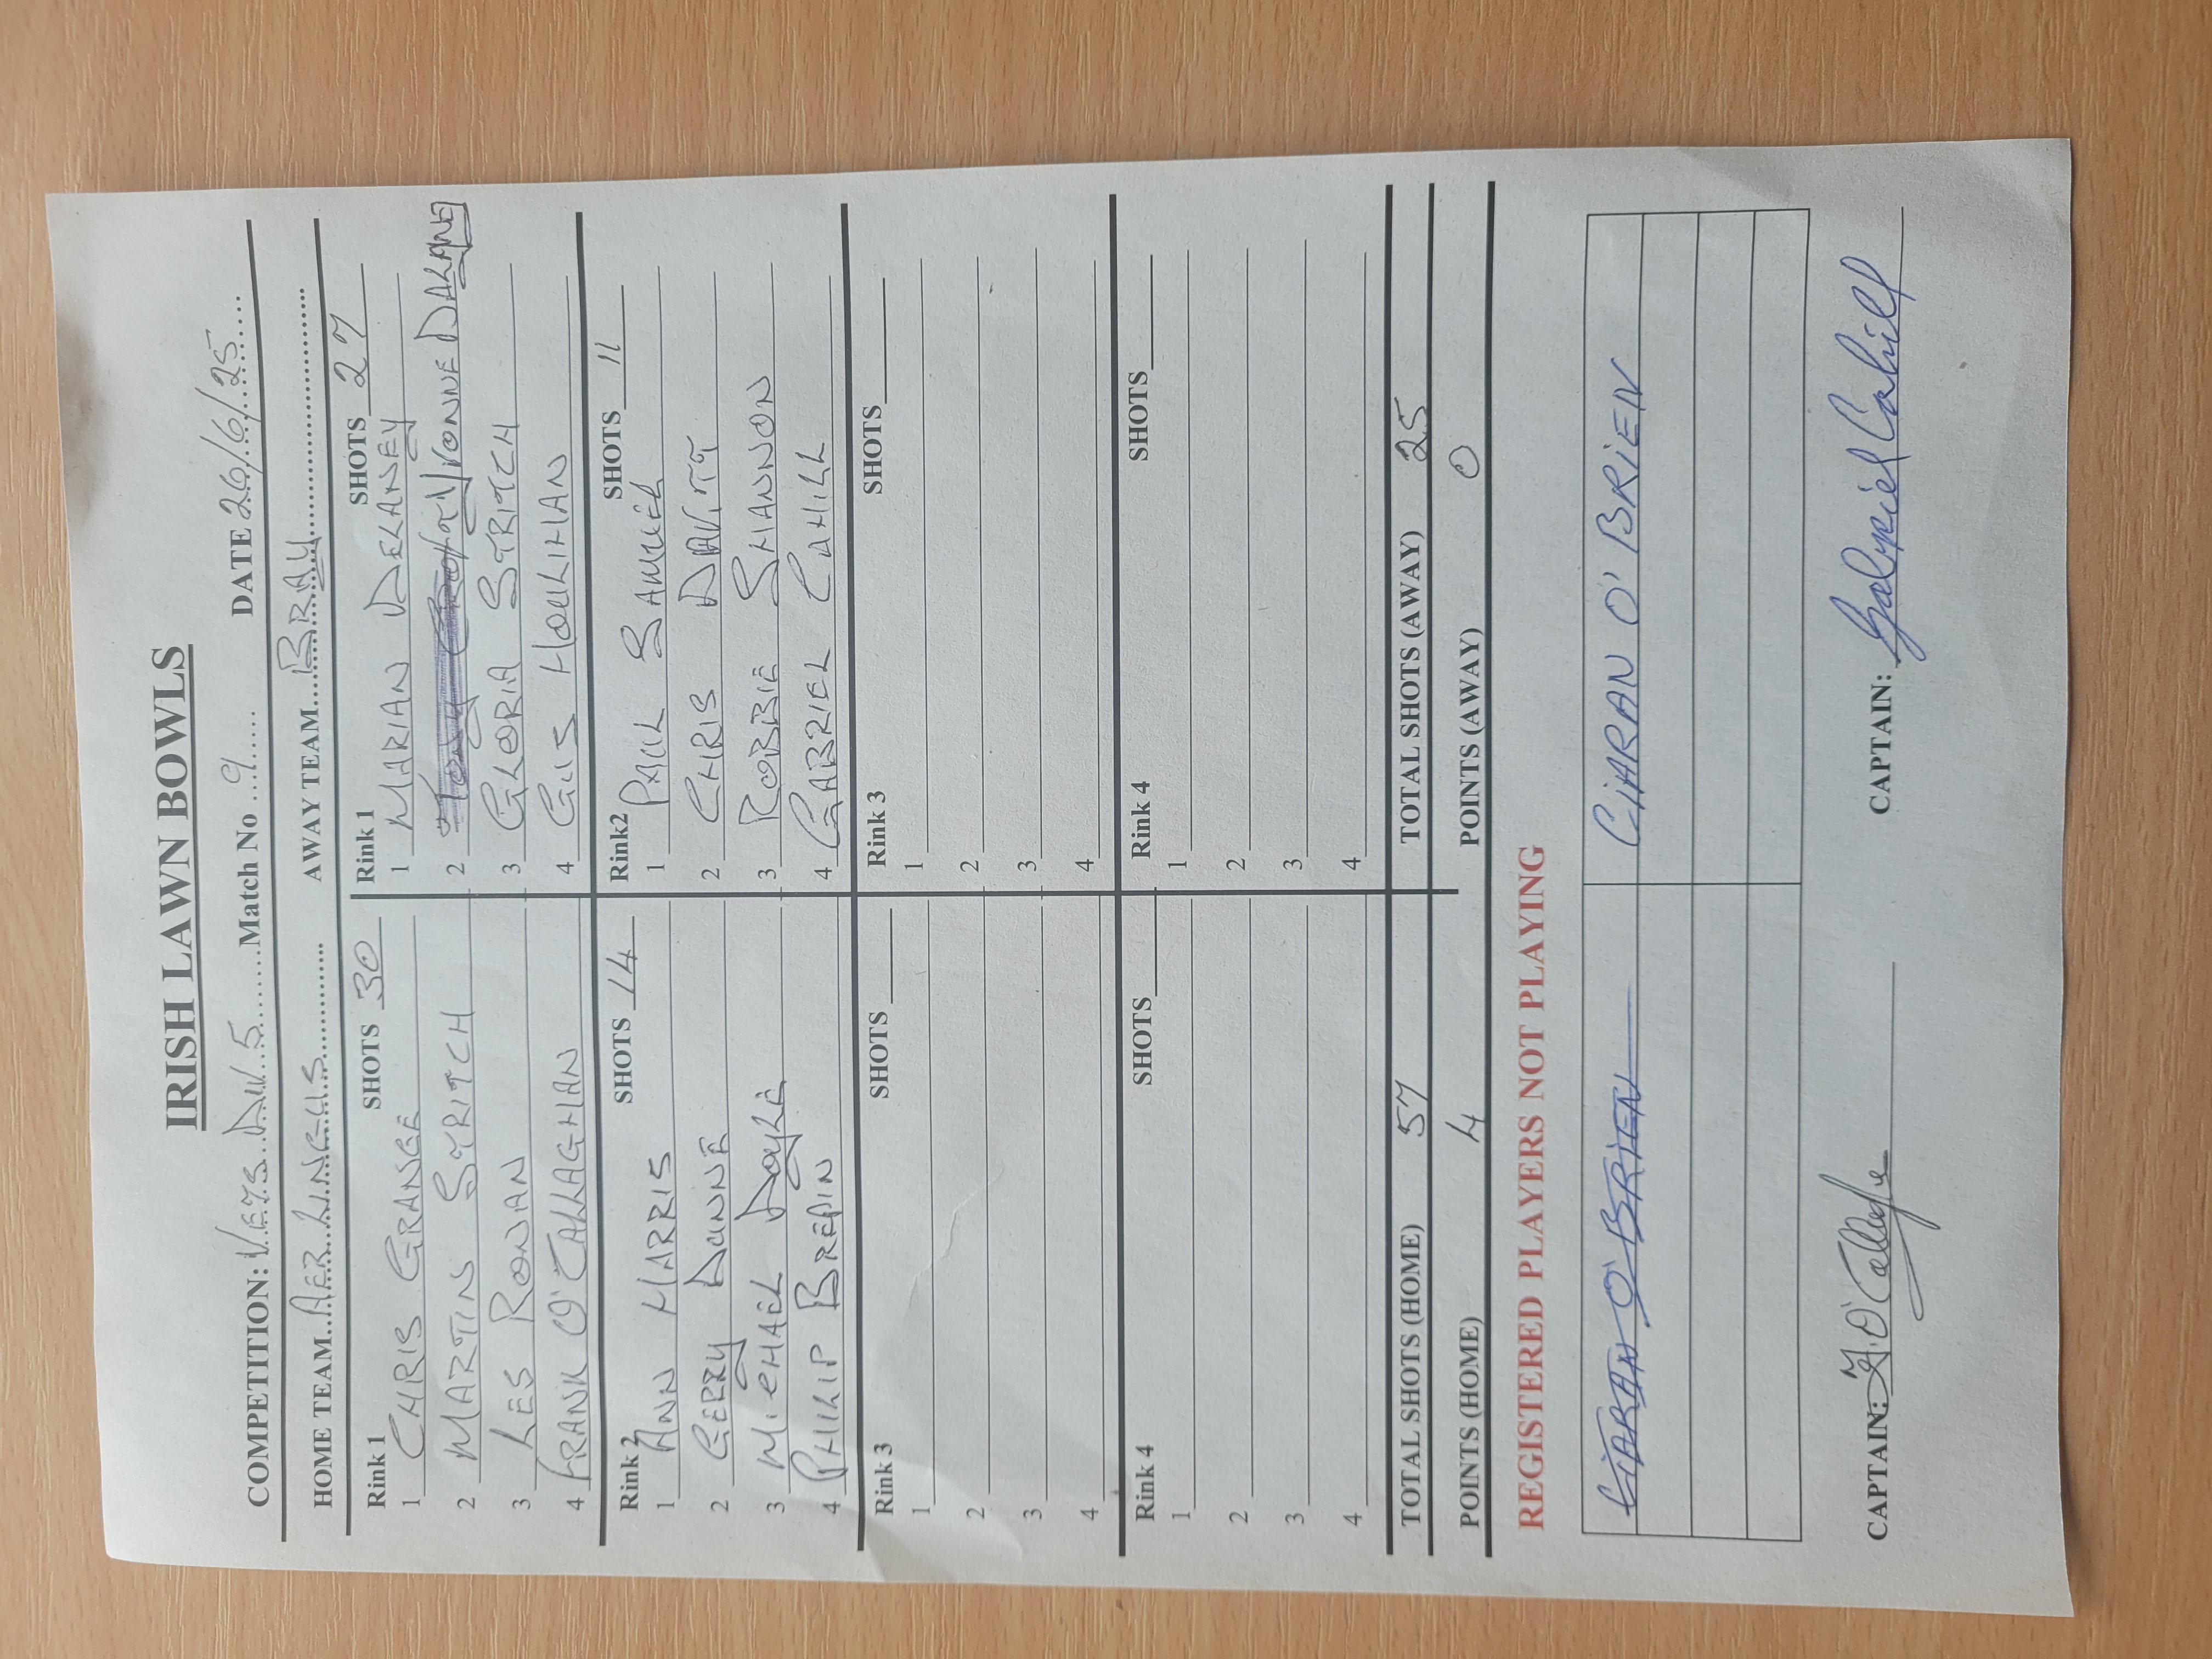 IRISH LAWN BOWLS
COMPETITION: VETS DIV 5 Match No 9 DATE 26/6/25
HOME TEAM AER LINGUS AWAY TEAM BRAY
Rink 1 SHOTS 30
1 CHRIS GRANGE
2 MARTIN STRITCH
3 LES ROWAN
4 FRANK O'CALLAGHAN
Rink 1 SHOTS 27
1 MARIAN DELANEY
2 YVONNE
3 GLORIA STRITCH
4 GUS HOULIHAN
Rink 2 SHOTS 14
1 ANN HARRIS
2 GERRY DUNNE
3 MICHAEL DOYLE
4 PHILIP BREPIN
Rink2 SHOTS 11
1 PAUL SAMUEL
2 CHRIS DAVITT
3 ROBBIE SHANNON
4 GABRIEL CAHILL
Rink 3 SHOTS
1
2
3
4
Rink 3 SHOTS
1
2
3
4
Rink 4 SHOTS
1
2
3
4
Rink 4 SHOTS
1
2
3
4
TOTAL SHOTS (HOME) 57 TOTAL SHOTS (AWAY) 25
POINTS (HOME) 4 POINTS (AWAY) 0
REGISTERED PLAYERS NOT PLAYING
CIARAN O'BRIEN CIARAN O'BRIEN
CAPTAIN: CAPTAIN: Gabriel Cahill